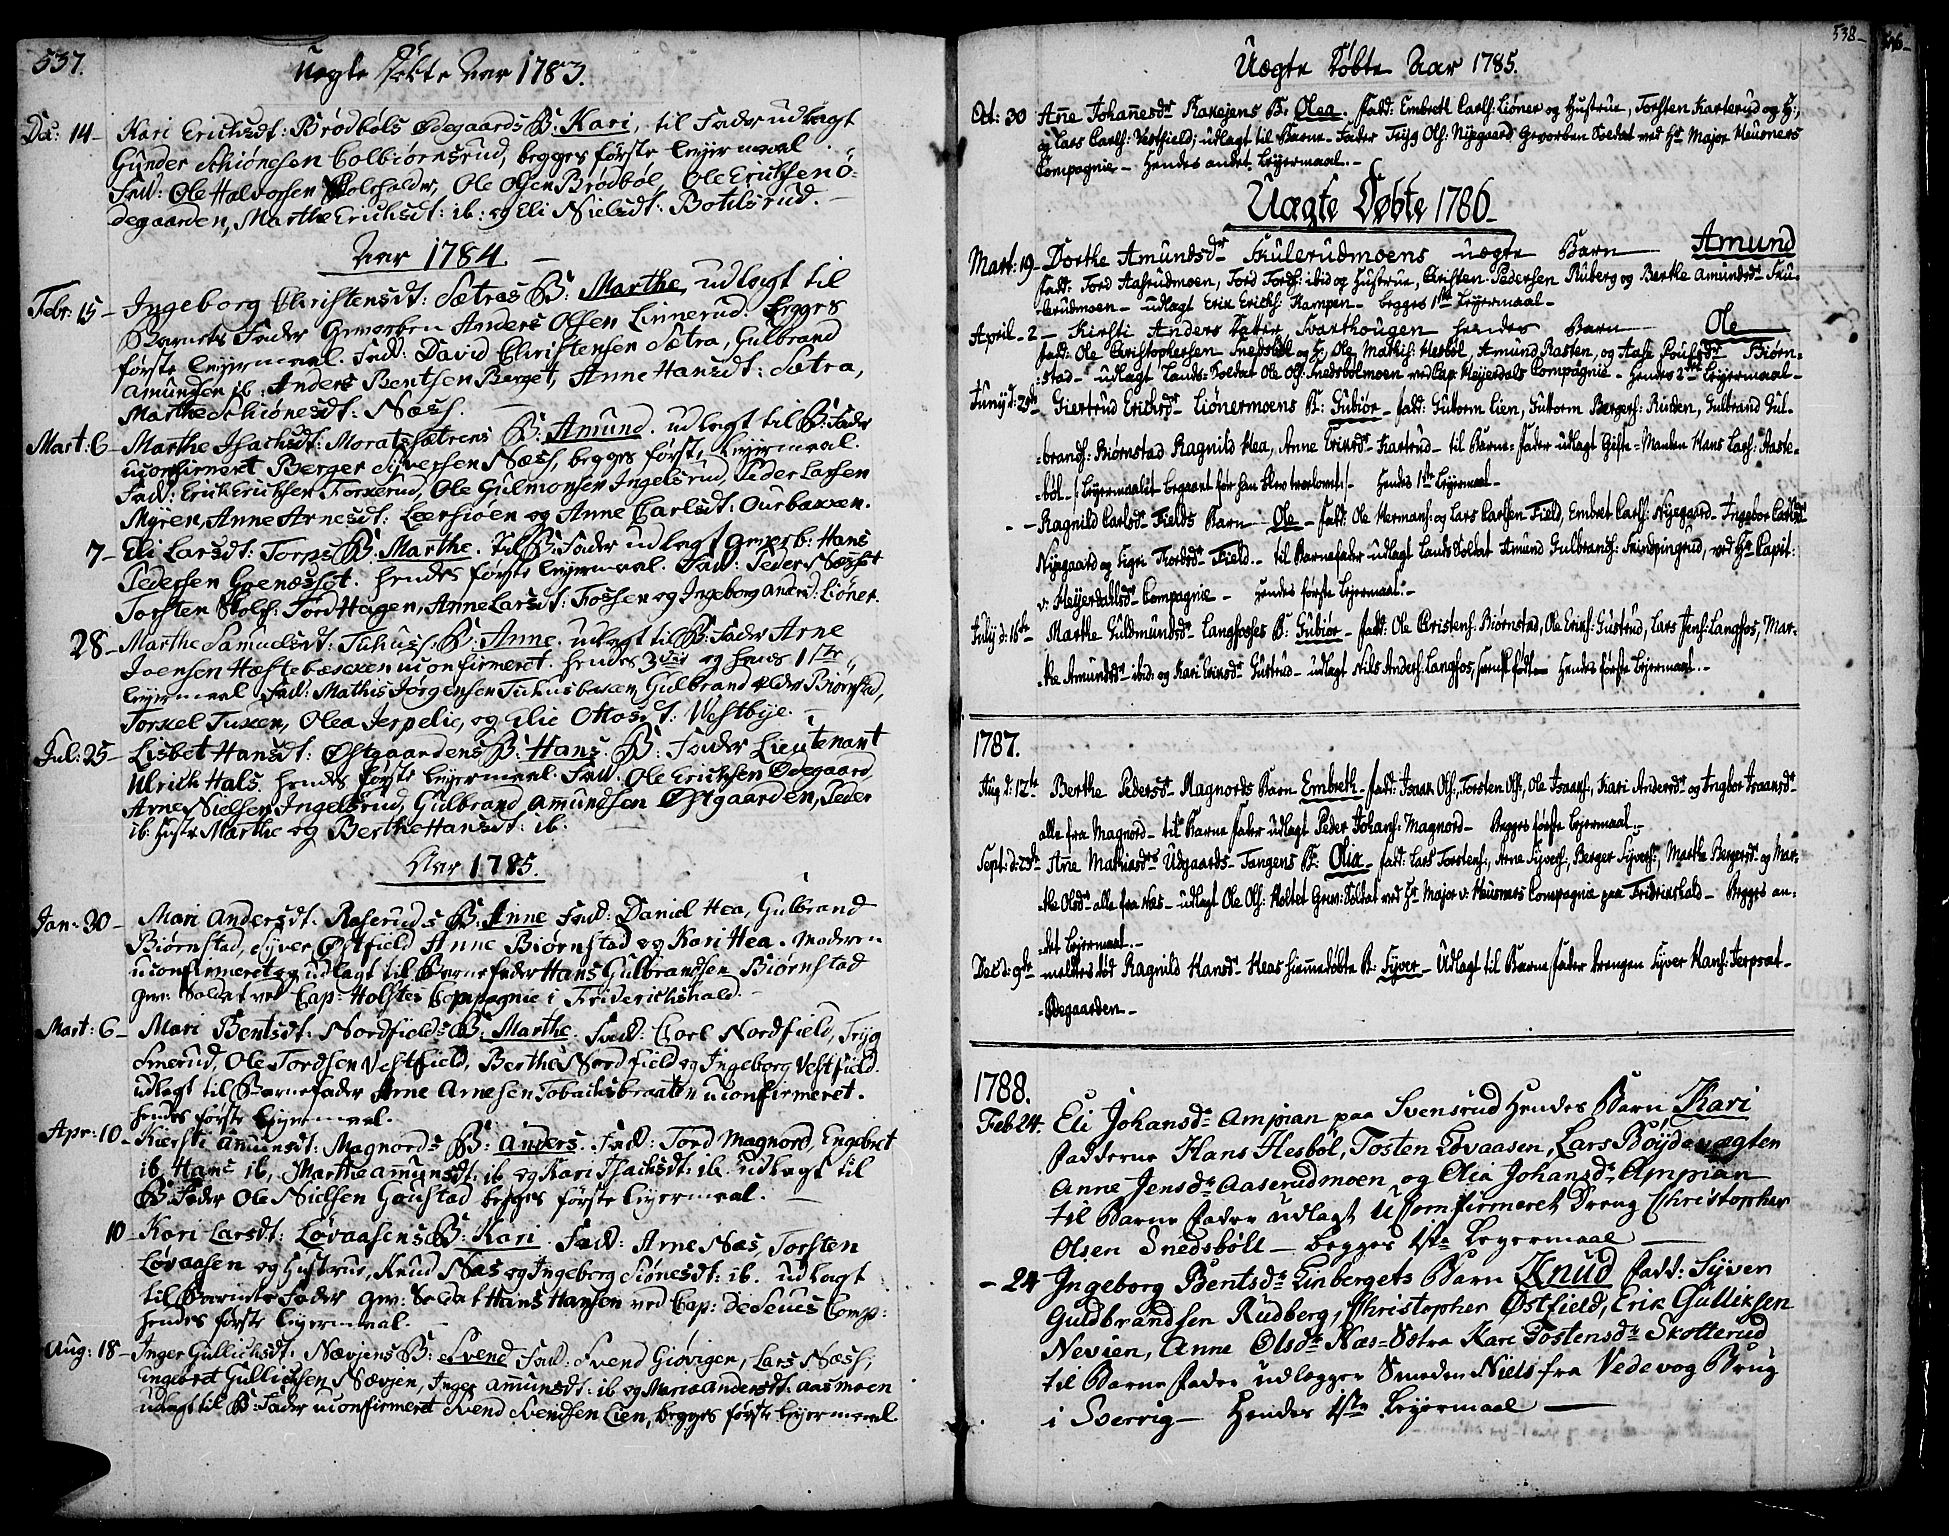 537.
Uægte Døbte Aar 1783.
Dec: 14 - Kari Erichsdt: Brødbøls Ødegaards B: Kari, til Fader udlagt
Gunder Schiønesen Colbiørnsrud, begges første leyermaal.
Fad: Ole Halvorsen Skoleholder, Ole Olsen Brødbøl, Ole Erichsen Ö-
degaarden, Marthe Erichsdt: ib: og Eli Nielsdt: Botilsrud. -
Aar 1784. -
Febr. 15 - Ingeborg Christensdt: Sætres B: Marthe, udlagt til
Barnets Fader Gevorben Anders Olsen Linnerud. begges
første leyermaal. Fad: David Christensen Sætra, Gulbrand
Amundsen ib: Anders Bentsen Berget, Anne Hansdt: Sætra,
Marthe Schiønesdt: Næss.
Mart: 6 - Marthe Isachsdt: Moratssætrens B: Amund. udlagt til B: Fader
uconfirmeret Berger Syversen Næss, begges første leyermaal.
Fad: Erich Erichsen Torkerud, Ole Gulmonsen Ingelsrud, Peder Larsen
Myren, Anne Arnesdt: Leersioen og Anne Carlsdt: Ourbakken.
7 - Eli Larsdt: Torps B: Marthe. til B: Fader udlagt gevorb: Hans
Pedersen Goenæsset. hendes første leyermaal. Fad: Peder Næsset
Torsten Skolch: Tord Hagen, Anne Larsdt: Fossen og Ingeborg Anders: Liöner.
28 - Marthe Samuelsdt: Tuhuss: B: Anne. udlagt til B: Fader Arne
Joensen Hæftebakken uconfirmeret. hendes 3die og hans 1ste
leyermaal Fad: Mathis Jørgensen Tuhusbakken, Gulbrand Elder Biørnstad,
Torkel Tuxen, Olea Jerpelie, og Elie Ottosdt: Vestbye. -
Jul: 25 - Lisbet Hansdt: Østgaardens B: Hans. B: Fader Lieutenant
Ulrich Hals. hendes første leyermaal. Fad: Ole Erichsen Ødegaard,
Arne Nielsen Ingelsrud, Gulbrand Amundsen Østgaarden, Peder
ib: Hustr: Marthe og Berthe Hansdt: ib:
Aar 1785.
Jan: 30 - Mari Andersdt: Raserud's B: Anne Fad: Daniel Hea, Gulbrand
Biørnstad, Syver Østfield Anne Biørnstad og Kari Hea. Moderen
uconfirmeret og udlagt til Barnefader Hans Gulbrandsen Biørnstad
gev: Soldat ved Cap: Holstes Compagnie i Friderichshald. -
Mart: 6 - Mari Bentsdt: Nordfield's B: Marthe. Fad: Carl Nordfield, Tryg
Smerud, Ole Tordsen Vestfield, Berthe Nordfield og Ingeborg Vestfield.
udlagt til Barnefader Arne Arnesen Tobachsbraaten uconfirmeret.
hendes første leyermaal.
Apr: 10 - Kiersti Amunsdt: Magnord's B: Anders. Fad: Tord Magnord, Engebret
ib Hans ib, Marthe Amunsdt: ib og Kari Isachsdt: ib. udlagt til
B: Fader Ole Nielsen Goustad begges første leyermaal. -
10 - Kari Larsdt: Løvaasens B: Kari. Fad: Arne Næs, Torsten
Løvaasen og Hustrue, Knud Næs og Ingeborg Siønesdt: ib. udlagt
til Barnets Fader gev: Soldat Hans Hansen ved Cap: De Seues Comp:
hendes første leyermaal. -
Aug: 18 - Inger Gullichsdt: Nævjens B: Svend Fad: Svend Giøvigen, Lars Næss,
Engebret Gullichsen Nævjen, Inger Amunsdt: ib og Maria Andersdt: Aasmoen
udlagt til B: Fader uconfirmeret Svend Svendsen Lien, begges første leyermaal.
538 -
Uægte Døbte Aar 1785.
Oct: 30 Anne Johannesdr Rakejens B: Olea. fadd: Embrett Carls: Liöner og Hustrue, Torsten Karterud og H:,
og Lars Carls: Vestfield; udlagt til Barne-Fader Tryg Ols: Nyegaard Gevorben Soldat ved Hr Major Heusners
Compagnie - Hendes andet Leyermaal. -
Uægte Døbte 1786 -
Mart: 19 - Dorthe Amundsdr Skulerudmoens uægte Barn Amund
fadd: Tord Aaserudmoen, Tord Tords: ibid og Hustrue, Christen Pedersen Ruberg og Berthe Amundsdr Sku-
-lerudmoen - udlagt Erik Ericks: Kampen - begges 1ste Leyermaal -
April - 2 - Kirsti Anders Datter Svarthougen hendes Barn Ole
fadd: Ole Christophersen Snedsböl og H:, Ole Mathis: Hesböl, Amund Rasten, og Aase Poulsdr Biørn-
-stad - udlagt Lands-Soldat Ole Ols: Snedsbölmoen ved Cap: Heyerdals Compagnie - Hendes 2det Leyermaal -
Junij d: 20de Giertrud Ericksdr Liönermoens B: Gubiör - fadd: Guttorm Lien, Guttorm Bergers: Rusten, Gulbrand Gul-
-brands: Biørnstad Ragnild Hea, Anne Eriksdr Kastrud - til Barne-fader udlagt Gifte-Manden Hans Lars: Aaste-
-böl - (: Leyermaalet begaaet før han blev trolovet :) - Hendes 1ste Leyermaal -
- - Ragnild Carlsdr Fields Barn Ole - fadd: Ole Hermans: og Lars Carlsen Field, Embret Carls: Nyegaard - Ingebor Carlsdr
Nyegaard og Sigri Tordsdr Field. - til Barnefader udlagt Lands Soldat Amund Gulbrands: ved Hr Capit:
v: Heyerdahls Compagnie - Hendes første Leyermaal. -
Julij d: 16de Marthe Guldmundsdr Langfosses B: Gubiör - fadd: Ole Christens: Biørnstad, Ole Eriks: Gustrud, Lars Jens: Langfos, Mar-
-the Amundsdr ibid: og Kari Eriksdr Gustrud - udlagt Nils Anders: Langfos, svensk født - Hendes første Leyermaal. -
1787.
Aug d: 12te Berthe Pedersdr Magnords Barn Embreth - fadd: Isaak Ols:, Torsten Ols:, Ole Isaaks:, Kari Andersdr og Ingbor Isaansdr
alle fra Magnord - til Barne fader udlagt Peder Johans: Magnord - Begges første Leyermaal. -
Sept: d: 23de Anne Mathiasdr Udgaards-Tangens B: Olia - fadd: Lars Torstens:, Arne Syvers:, Berger Syvers:, Marthe Bergersdr og Mar-
-the Olsdr alle fra Næs - udlagt Ole Ols: Holtet Gew: Soldat ved Hr Major v: Heusners Compagnie paa Fridrikshald - Begges an-
-det Leyermaal. -
Dec d: 9de meldtes død Ragnild Hansdr Heas hiemmedøbte B: Syver - Udlagt til Barne fader Drengen Syver Hans: Jerpset-
-Ødegaarden -
1788.
Feb 24. Eli Johansdr Ampian paa Svensrud Hendes Barn Kari
Fadderne Hans Hesböl, Tosten Lövaasen, Lars
Anne Jensdr Aaserudmoen og Olia Johansdr Ampian
til Barne fader udlagt Uconfirmeret Dreng Christopher
Olsen Snedsböll - begges 1ste Leyermaal -
- 24 Ingeborg Bentsdr Einbergets Barn Knud fadd: Syver
Guldbrandsen Rudberg, Christopher Østfield, Erik Gulliksen
Nevien, Anne Olsdr Næs-Sætra Kari Tostensdr Skotterud
til Barne fader udlegger Smeden Niels fra Vedevog Brug
i Sverrig - Hendes 1ste Leyermaal -